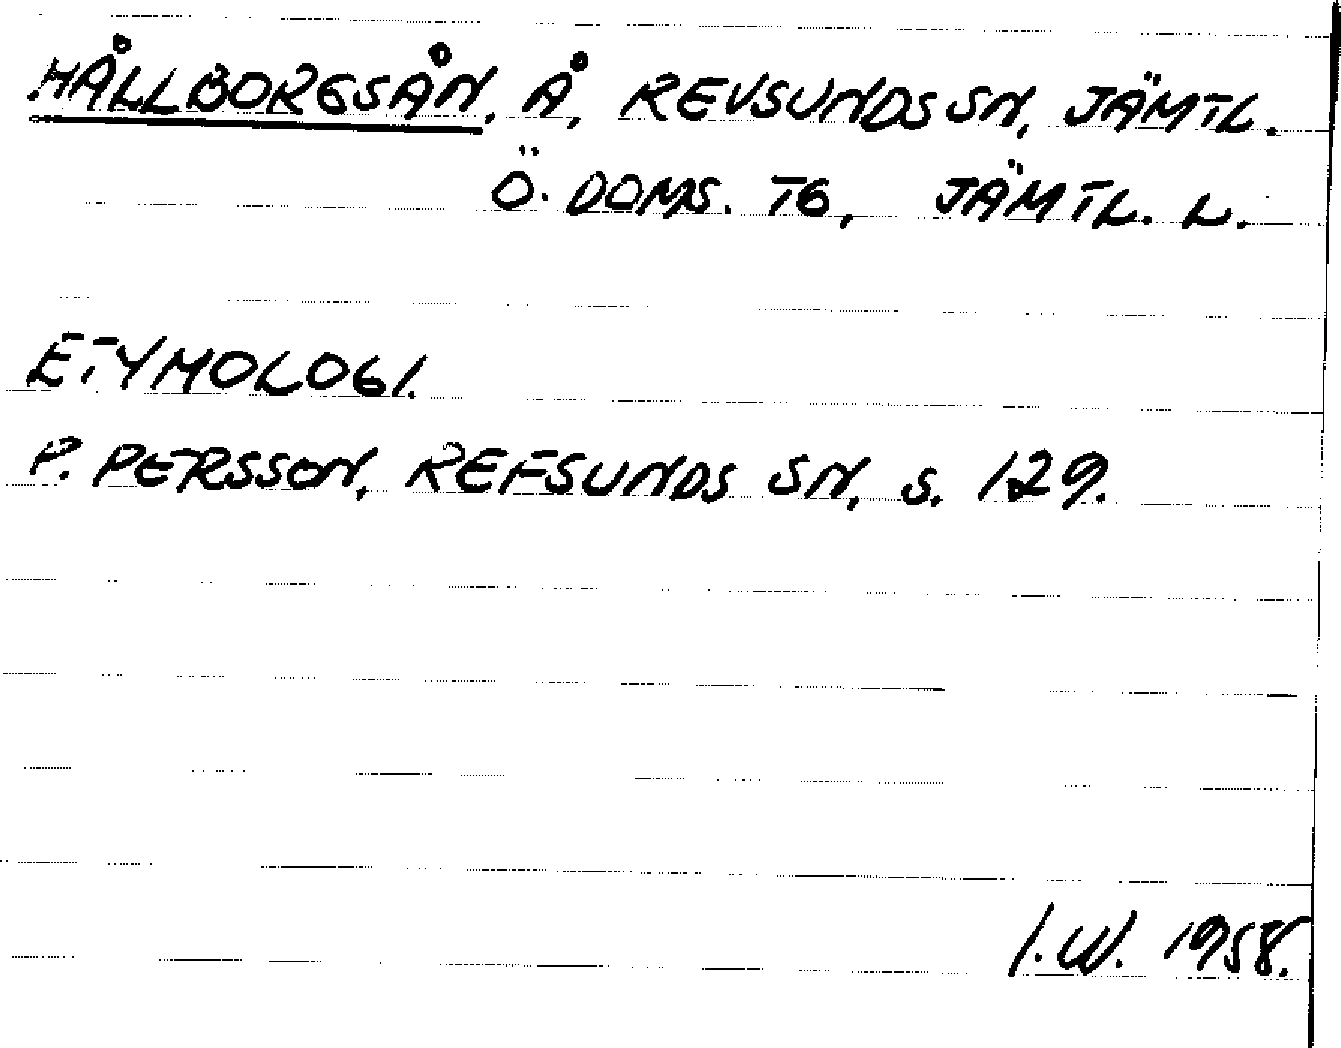 HÅLLBORGSÅN, Å, REVSUNDS SN, JÄMTL.
Ö. DOMS. TG, JÄMTL. L.
ETYMOLOGI.
P. PERSSON, REFSUNDS SN, S. 129.
I.W. 1958.